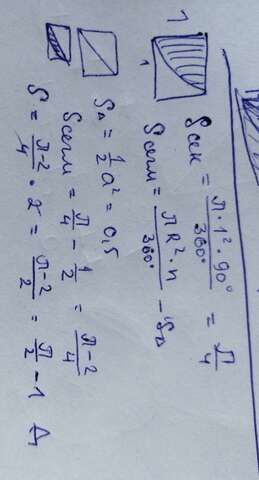 1
1
Sсек = π·1²·90° / 360° = π/4
Sсегм = πR²·n / 360° - S△
S△ = 1/2 a² = 0,5
Sсегм = π/4 - 1/2 = π-2 / 4
S = π-2 / 4 · 2 = π-2 / 2 = π/2 - 1